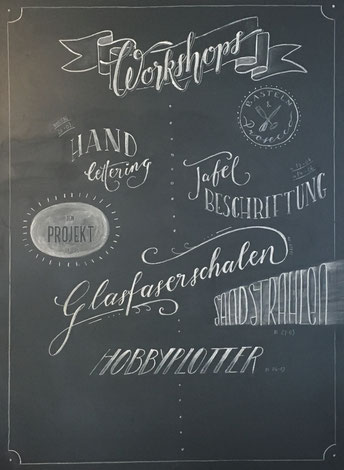 Workshops
BASTELN
&
Prosecco
HAND
lettering
Tafel
BESCHRIFTUNG
EIN
PROJEKT
Glasfaserschalen
SANDSTRAHLEN
HOBBYPLOTTER